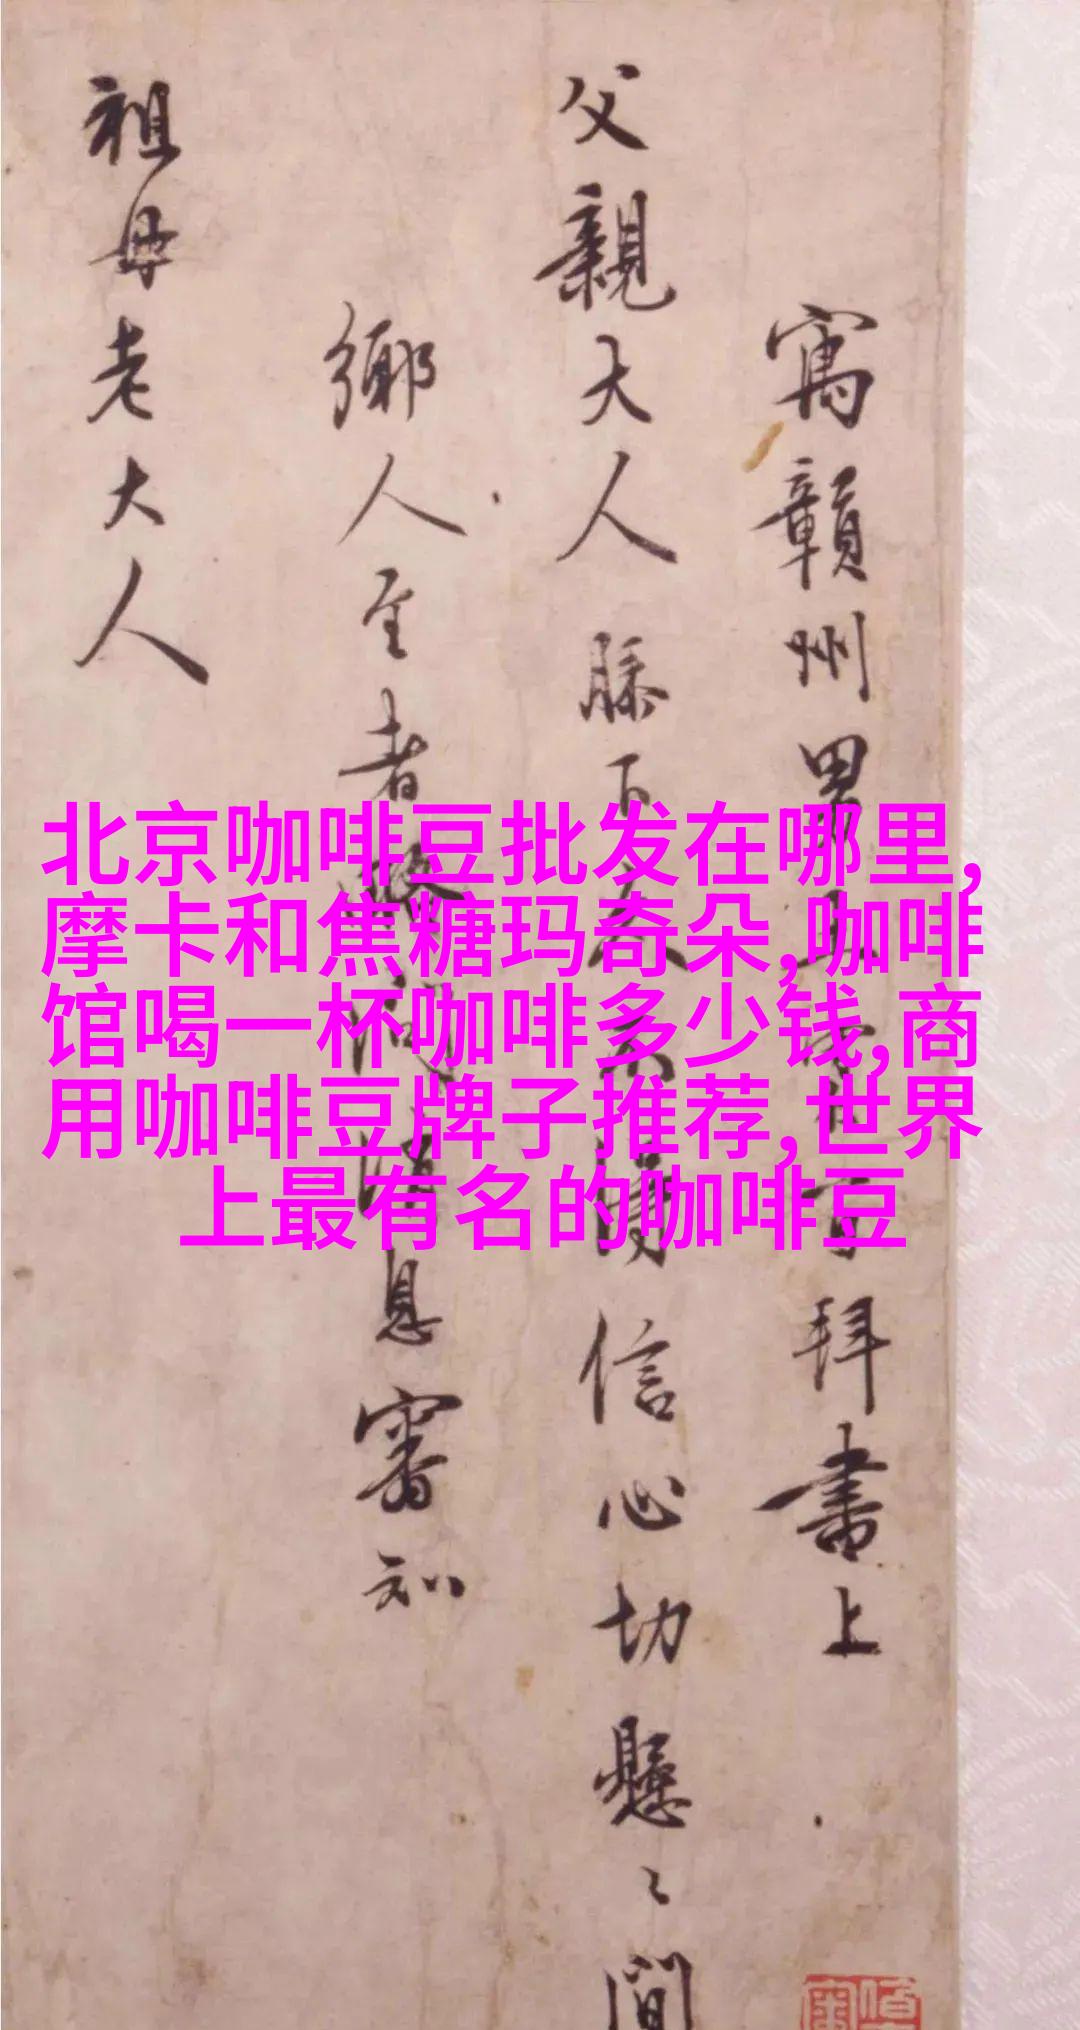 寓贛州男王守仁百拜書上
父親大人膝下久不得信心切懸〻間
鄉人至者略
息審知
祖母老大人
北京咖啡豆批发在哪里,
摩卡和焦糖玛奇朵,咖啡
馆喝一杯咖啡多少钱,商
用咖啡豆牌子推荐,世界
上最有名的咖啡豆